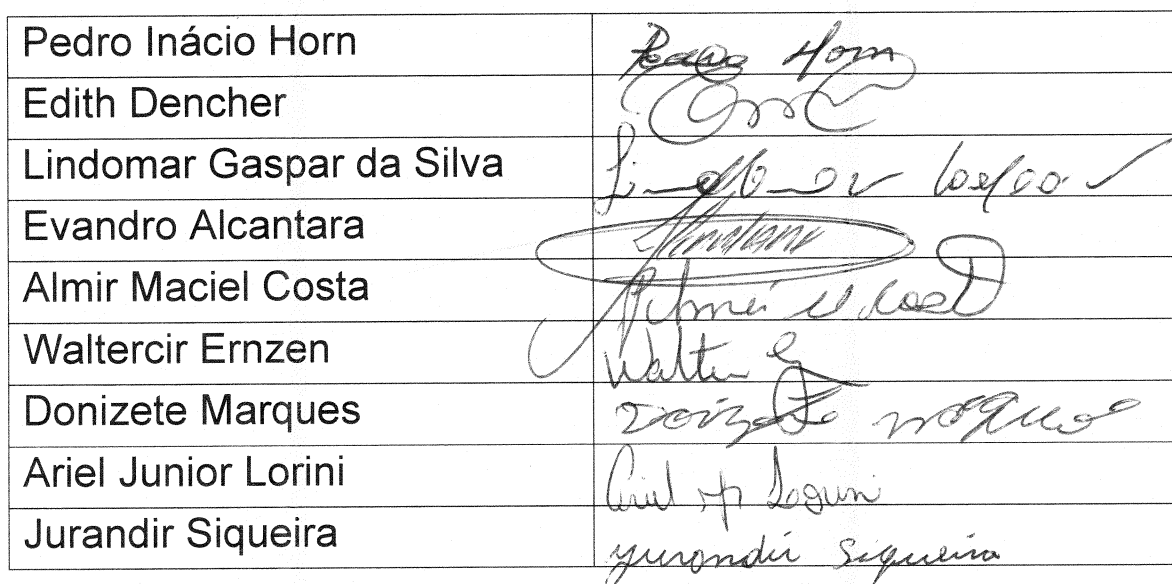 Pedro Inácio Horn Pedro Horn
Edith Dencher
Lindomar Gaspar da Silva Lindomar Gaspar
Evandro Alcantara
Almir Maciel Costa Almir M Costa
Waltercir Ernzen Walter E
Donizete Marques Donizete Marques
Ariel Junior Lorini Ariel Jr Lorini
Jurandir Siqueira Jurandir Siqueira